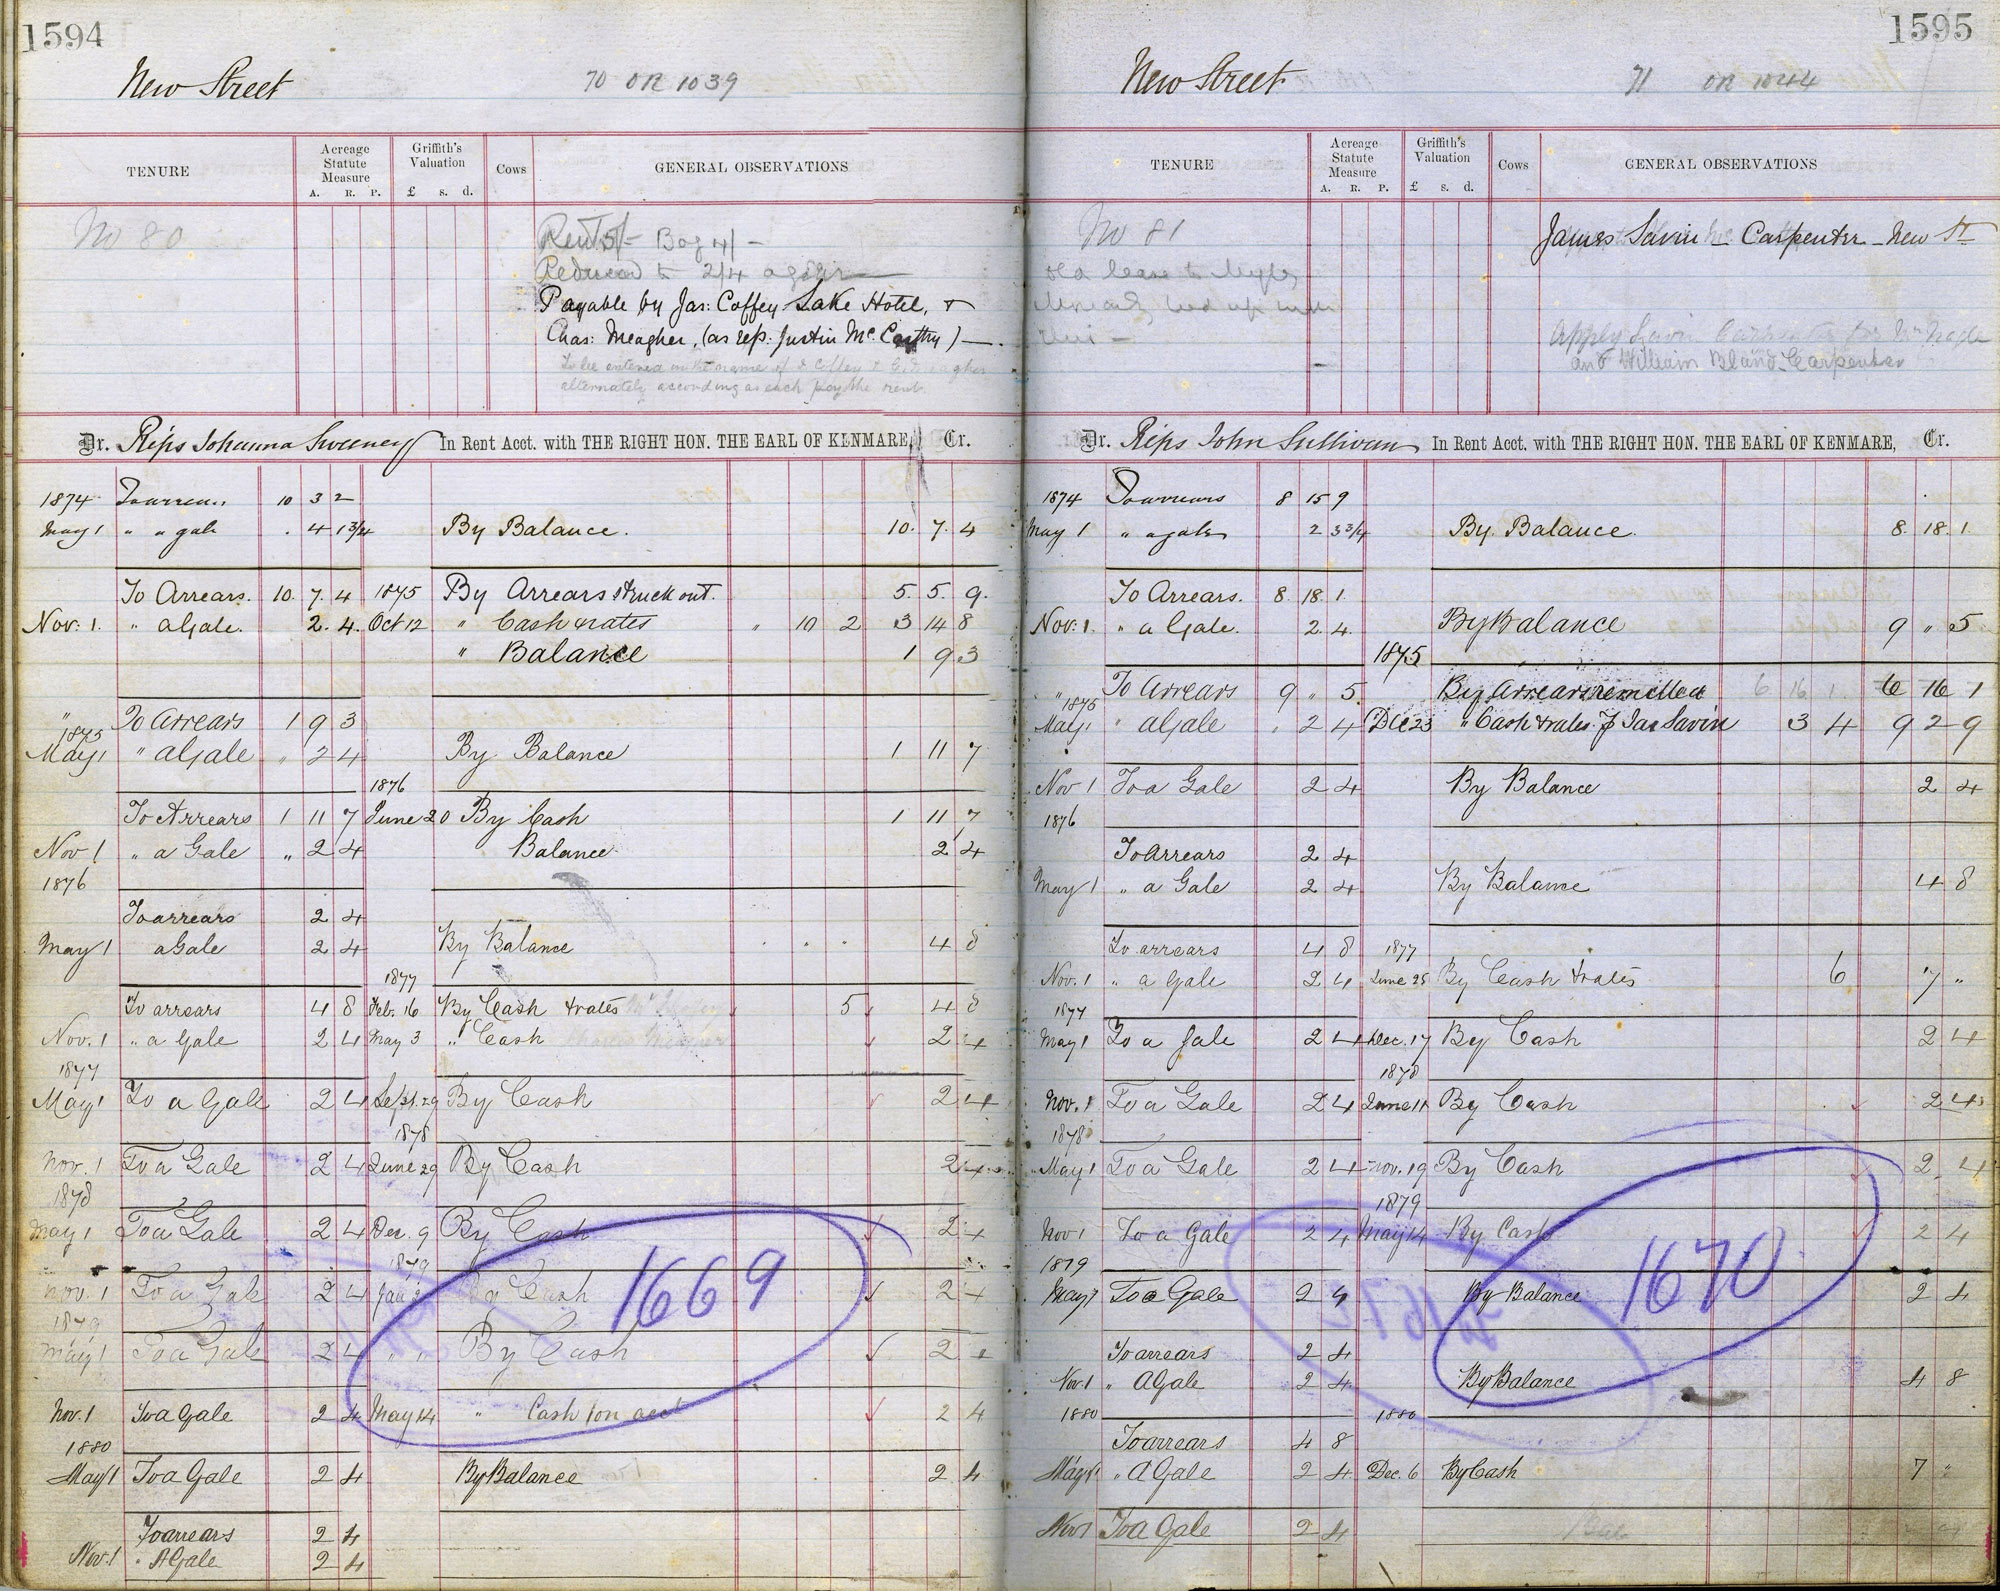 1594
New Street
70 OR 1039
TENURE
Acreage Statute Measure
A. R. P.
Griffith's Valuation
£ s. d.
Cows
GENERAL OBSERVATIONS
No 80
Rent 5/- Bog 4/-
Reduced to 2/4 a gale
Payable by Jas: Coffey Lake Hotel, &
Chas: Meagher, (as rep: Justin McCarthy) —
To be entered in the name of J Coffey & C. Meagher
alternately according as each pay the rent.
Dr. Reps Johanna Sweeney In Rent Acct. with THE RIGHT HON. THE EARL OF KENMARE, Cr.
1874 To arrears 10 3 2
May 1 " " gale . 4 1 3/4 By Balance. 10. 7. 4
To Arrears. 10. 7. 4 1875 By Arrears struck out. 5. 5. 9.
Nov: 1. " a Gale. 2. 4. Oct 12 " Cash & rates " 10 2 3 14 8
" Balance 1 9 3
" To Arrears 1 9 3
1875
May 1 " a Gale " 2 4 By Balance 1 11 7
1876
To Arrears 1 11 7 June 20 By Cash 1 11 7
Nov 1 " a Gale " 2 4 Balance 2 4
1876
To arrears 2 4
May 1 a Gale 2 4 By Balance 4 8
1877
To arrears 4 8 Feb. 16 By Cash & rates 5 4 8
Nov. 1 " a Gale 2 4 May 3 " Cash 2 4
1877
May 1 To a Gale 2 4 Sept. 29 By Cash 2 4
1878
Nov. 1 To a Gale 2 4 June 29 By Cash 2 4
1878
May 1 To a Gale 2 4 Dec. 9 By Cash 2 4
1879
Nov. 1 To a Gale 2 4 Jan 2 By Cash 2 4
1669
1879
May 1 To a Gale 2 4 " " By Cash 2 4
Nov. 1 To a Gale 2 4 May 14 " Cash on acct 2 4
1880
May 1 To a Gale 2 4 By Balance 2 4
To arrears 2 4
Nov. 1 " A Gale 2 4
1595
New Street
71 OR 1044
TENURE
Acreage Statute Measure
A. R. P.
Griffith's Valuation
£ s. d.
Cows
GENERAL OBSERVATIONS
No 81
James Savin — Carpenter — New St
and William Bland Carpenter
Dr. Reps John Sullivan In Rent Acct. with THE RIGHT HON. THE EARL OF KENMARE, Cr.
1874 To arrears 8 15 9
May 1 " a gale 2 3 3/4 By Balance. 8. 18. 1.
To Arrears. 8. 18. 1.
Nov: 1. " a Gale. 2. 4. By Balance 9 " 5
1875
" To Arrears 9 " 5. By Arrears remitted 6 16 1 6 16 1
1875
May 1 " a Gale " 2 4 Dec 23 " Cash & rates Jas Savin 3 4 9 2 9
Nov 1 To a Gale 2 4 By Balance 2 4
1876
To Arrears 2 4
May 1 " a Gale 2 4 By Balance 4 8
To arrears 4 8 1877
Nov. 1 " a Gale 2 4 June 25 By Cash & rates 6 7 "
1877
May 1 To a Gale 2 4 Dec. 17 By Cash 2 4
1878
Nov. 1 To a Gale 2 4 June 11 By Cash 2 4
1878
May 1 To a Gale 2 4 Nov. 19 By Cash 2 4
1879
Nov 1 To a Gale 2 4 May 14 By Cash 2 4
1879
1670
May 1 To a Gale 2 4 By Balance 2 4
To arrears 2 4
Nov. 1 " A Gale 2 4 By Balance 4 8
1880 1880
To arrears 4 8
May 1 " A Gale 2 4 Dec. 6 By Cash 7 "
Nov 1 To A Gale 2 4